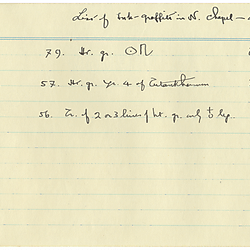 List of ink-graffiti in N. Chapel —
79. Hr. gr.
57. Hr. gr. Yr. 4 of Tutankhamun
56. Tr. of 2 or 3 lines of ht. gr. only leg.